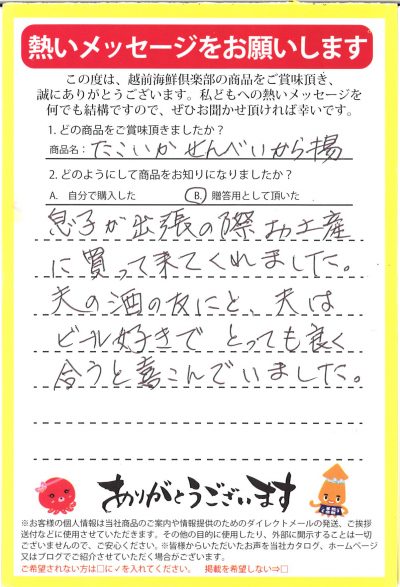 熱いメッセージをお願いします
この度は、越前海鮮倶楽部の商品をご賞味頂き、
誠にありがとうございます。私どもへの熱いメッセージを
何でも結構ですので、ぜひお聞かせ頂ければ幸いです。
1. どの商品をご賞味頂きましたか？
商品名： たこいかせんべいから揚
2. どのようにして商品をお知りになりましたか？
A. 自分で購入した B. 贈答用として頂いた
息子が出張の際お土産
に買って来てくれました。
夫の酒の友にと、夫は
ビール好きでとっても良く
合うと喜こんでいました。
ありがとうございます
※お客様の個人情報は当社商品のご案内や情報提供のためのダイレクトメールの発送、ご挨拶
送付などに使用させていただきます。その他の目的で使用したり、外部に開示することは一切
ございませんので、ご安心ください。※皆様からいただいたお声を当社カタログ、ホームページ
又はブログでご紹介させていただく場合がございます。
ご希望されない方は□に✓を入れてください。 掲載を希望しない⇒□